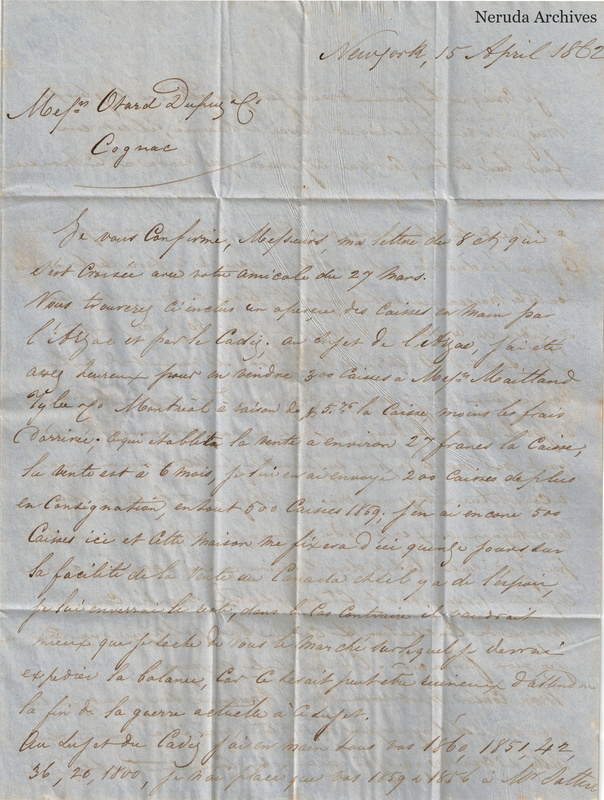 Neruda Archives
New York, 15 April 1862
Messrs Otard Dupuy & Co
Cognac
Je vous Confirme, Messieurs, ma lettre du 8 ct, qui
s'est Croisée avec votre amicale du 27 Mars.
Vous trouverez ci-inclus un apercu des Caisses en main par
l'Arzac et par le Cadiz; au sujet de l'Arzac, j'ai été
assez heureux pour en vendre 300 Caisses à Messrs Maitland
Tylee & Co Montréal à raison de $5.75 la Caisse moins les frais
d'arrivée; ce qui établit la vente à environ 27 francs la Caisse,
la vente est à 6 mois, je lui en ai envoyé 200 Caisses de plus
en Consignation, en tout 500 Caisses 1859; j'en ai encore 500
Caisses ici et Cette maison me fixera d'ici quinze jours sur
la facilité de la vente au Canada et s'il y a de l'espoir,
je lui enverrai le reste, dans le Cas Contraire il vaudrait
mieux que je sache de vous le Marché sur lequel je devrai
expédier la balance, Car Ce serait peut être ruineux d'attendre
la fin de la guerre actuelle à Ce sujet.
Au sujet du Cadiz j'ai en main tous vos 1860, 1851, 42,
36, 20, 1800, je n'ai placé que vos 1859 & 1856 à Mr